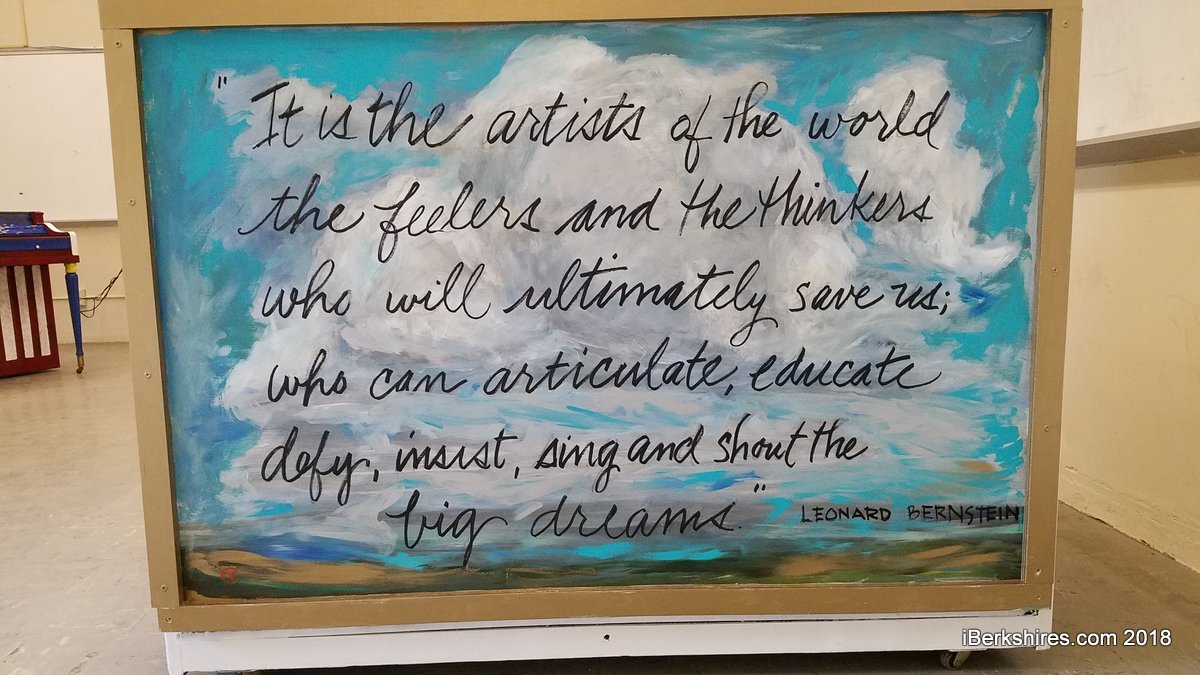 "It is the artists of the world
the feelers and the thinkers
who will ultimately save us;
who can articulate, educate
defy, insist, sing and shout the
big dreams."
LEONARD BERNSTEIN
iBerkshires.com 2018